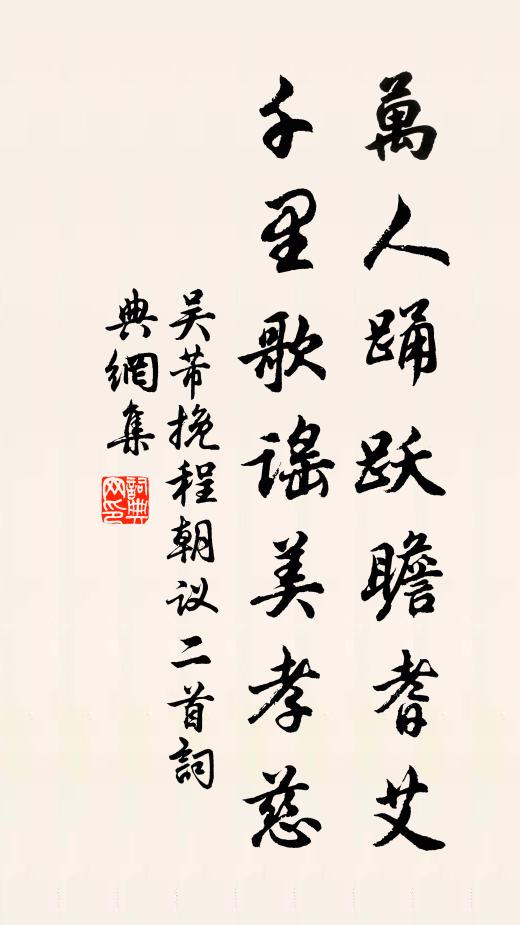 萬人踊跃瞻耆艾
千里歌謡美孝慈
吴芾挽程朝议二首詞
典網集
詞典网印